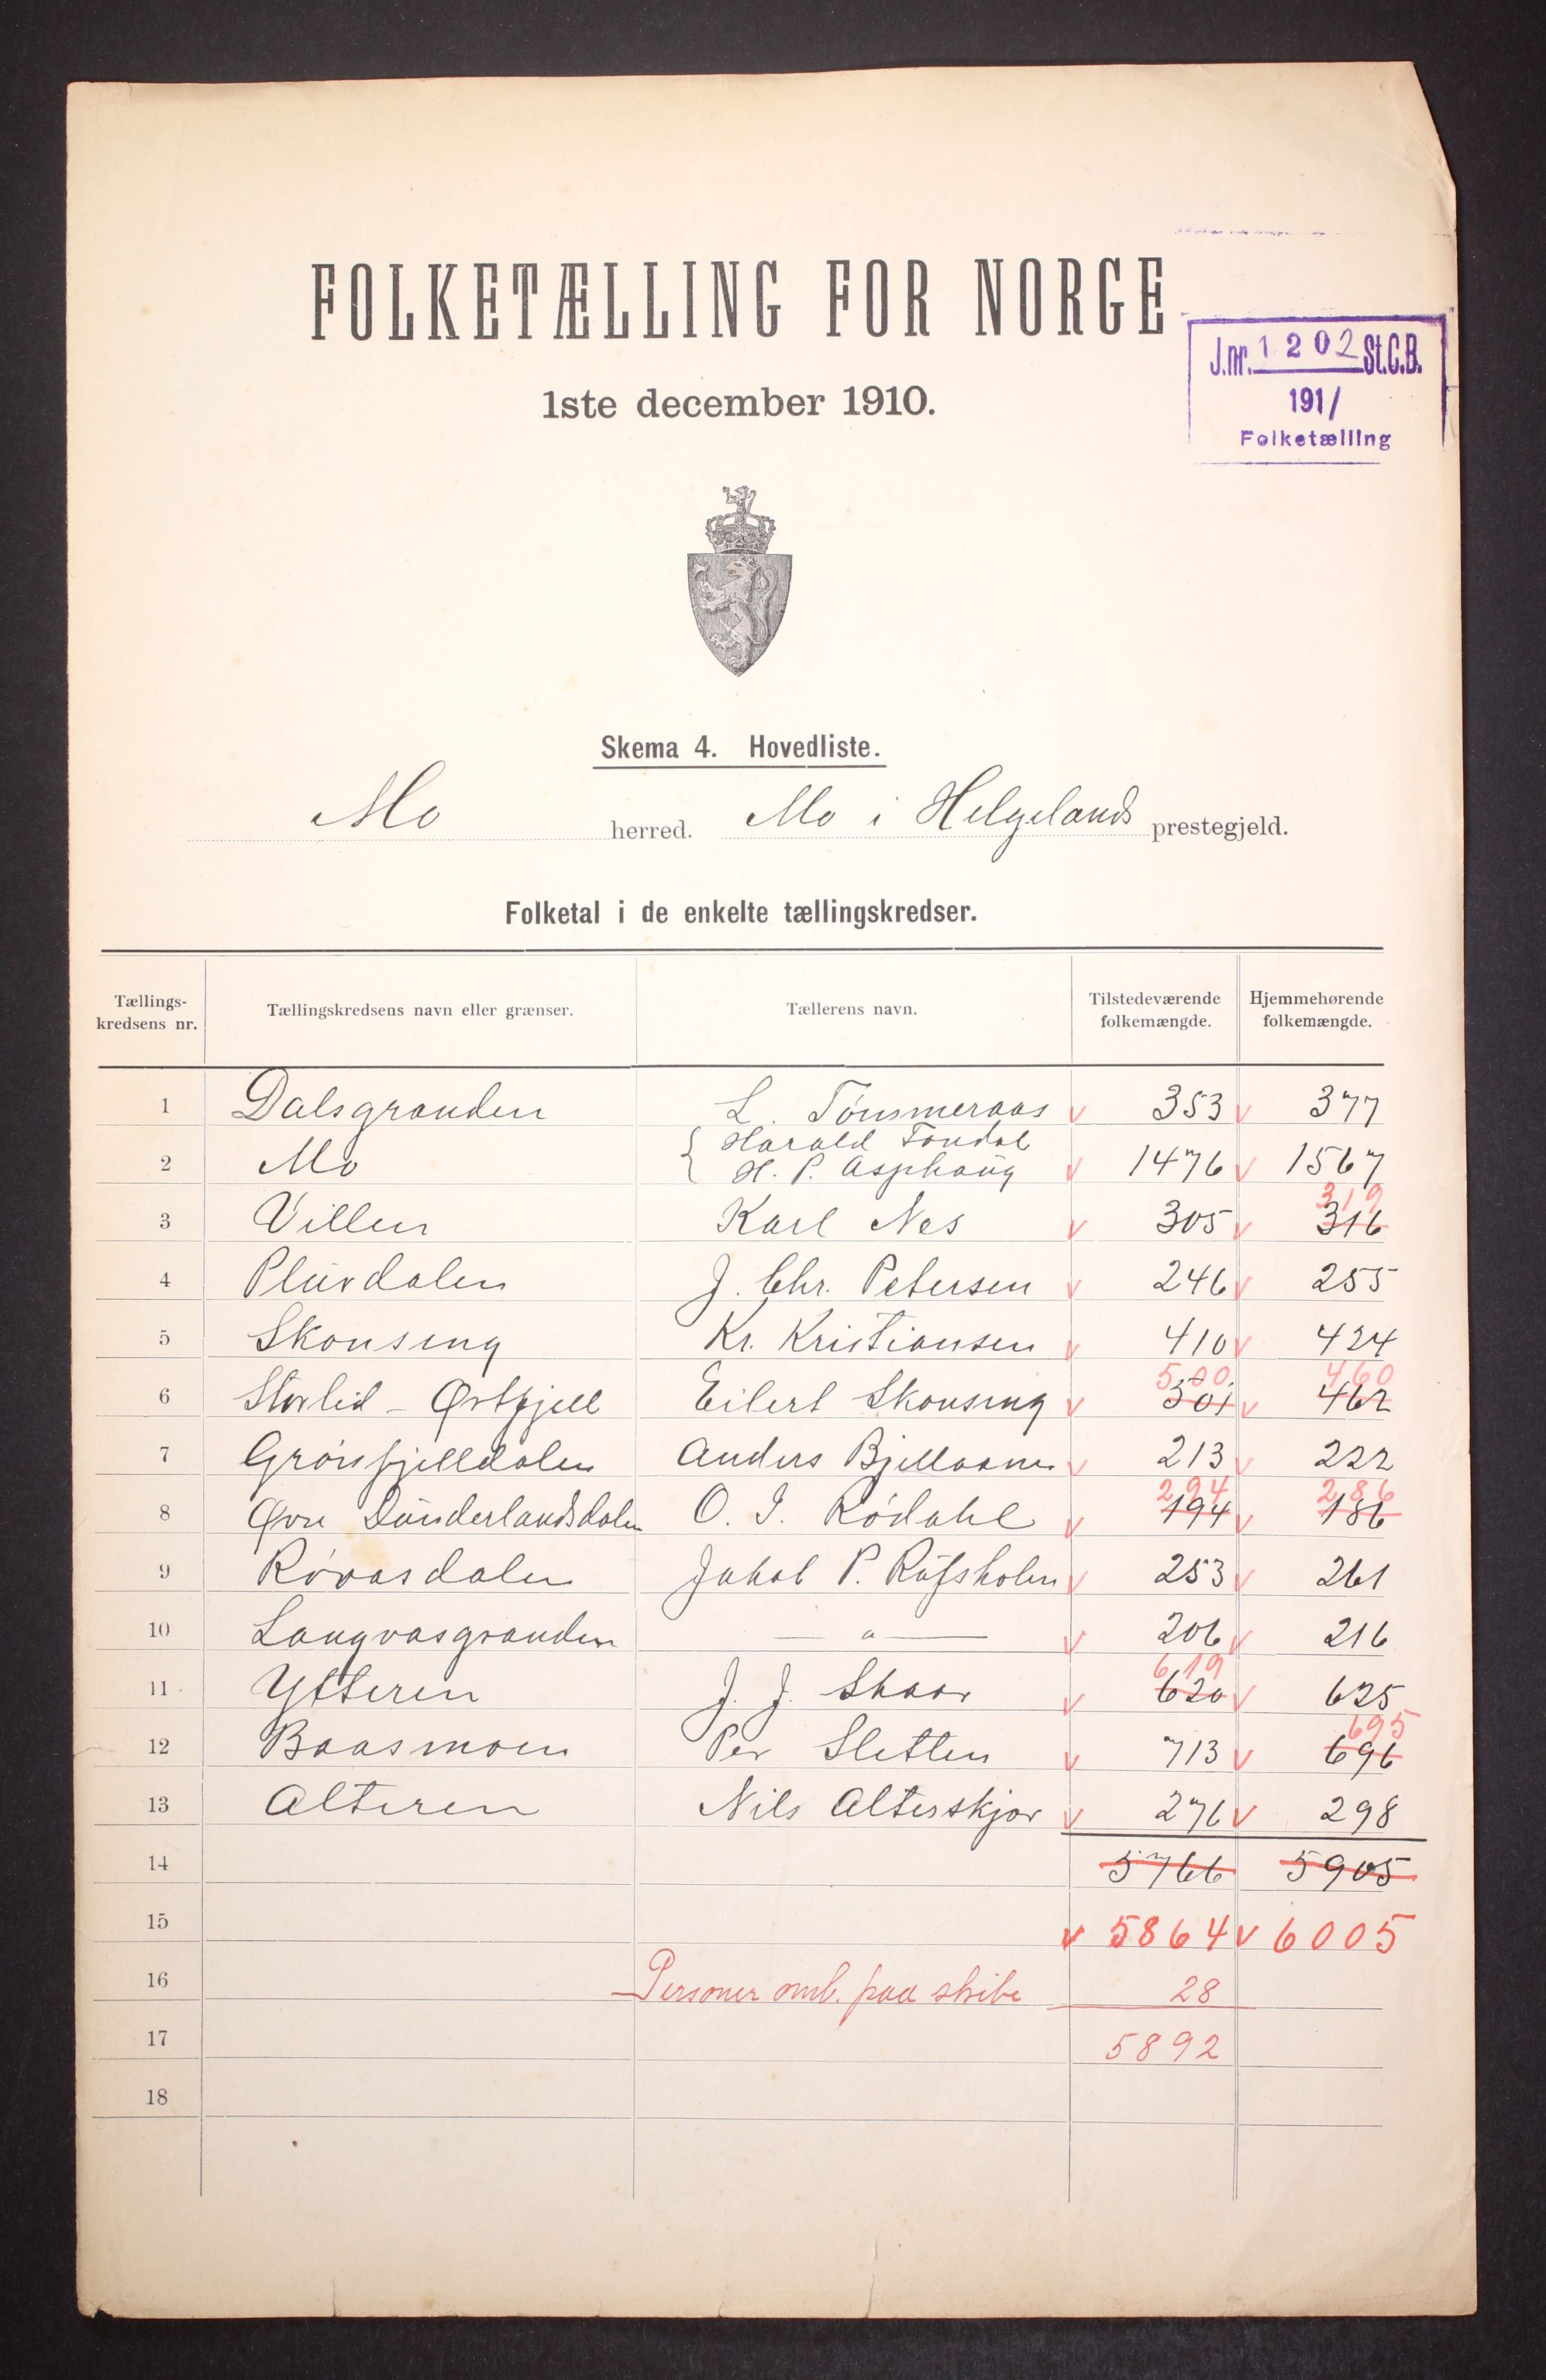 FOLKETÆLLING FOR NORGE
1ste december 1910.
J.nr. 1202 St.C.B.
191/
Folketælling
Skema 4. Hovedliste.
Mo herred. Mo i Helgelands prestegjeld.
Folketal i de enkelte tællingskredser.
Tællings-kredsens nr. Tællingskredsens navn eller grænser. Tællerens navn. Tilstedeværende folkemængde. Hjemmehørende folkemængde.
1 Dalsgranden L. Tønsmeraas v 353 v 377
{ Harald Fondal
2 Mo H. P. Asphaug v 1476 v 1567
319
3 Villen Karl Nes v 305 v 316
4 Plurdalen J. Chr. Petersen v 246 v 255
5 Skonseng Kr. Kristiansen v 410 v 424
500. 460
6 Storlid - Ørtfjell Eilert Skonseng v 501 v 462
7 Grønfjelldalen Anders Bjellaanes v 213 v 222
294 286
8 Øvre Dunderlandsdalen O. J. Rødahl v 194 v 186
9 Røvasdalen Jakob P. Røfsholm v 253 v 261
10 Langvasgranden — " — v 206 v 216
619
11 Ytteren J. J. Skaar v 620 v 625
695
12 Baasmoen Per Sletten v 713 v 696
13 Alteren Nils Alterskjær v 276 v 298
14 5766 5905
15 v 5864 v 6005
16 Personer omb. paa skibe 28
17 5892
18